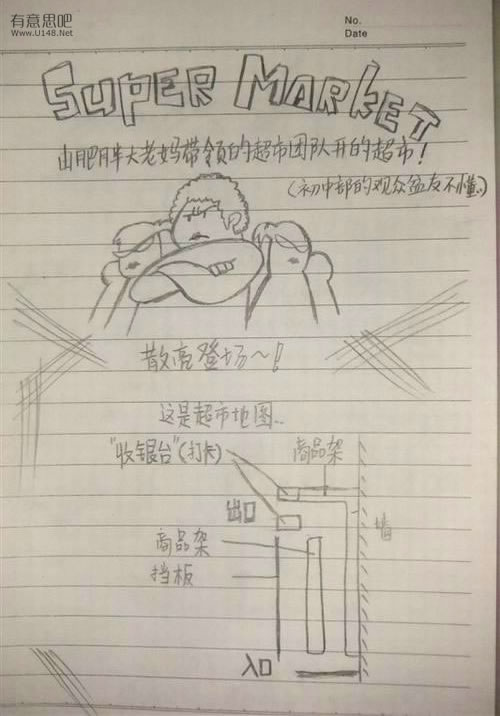 有意思吧
www.U148.Net
No.
Date
SUPER MARKET
由肥胖大老妈带领的超市团队开的超市！
(初中部的观众盆友不懂..)
散亮登场～！
这是超市地图..
"收银台"(打卡)
商品架
出口
墙
商品架
挡板
入口